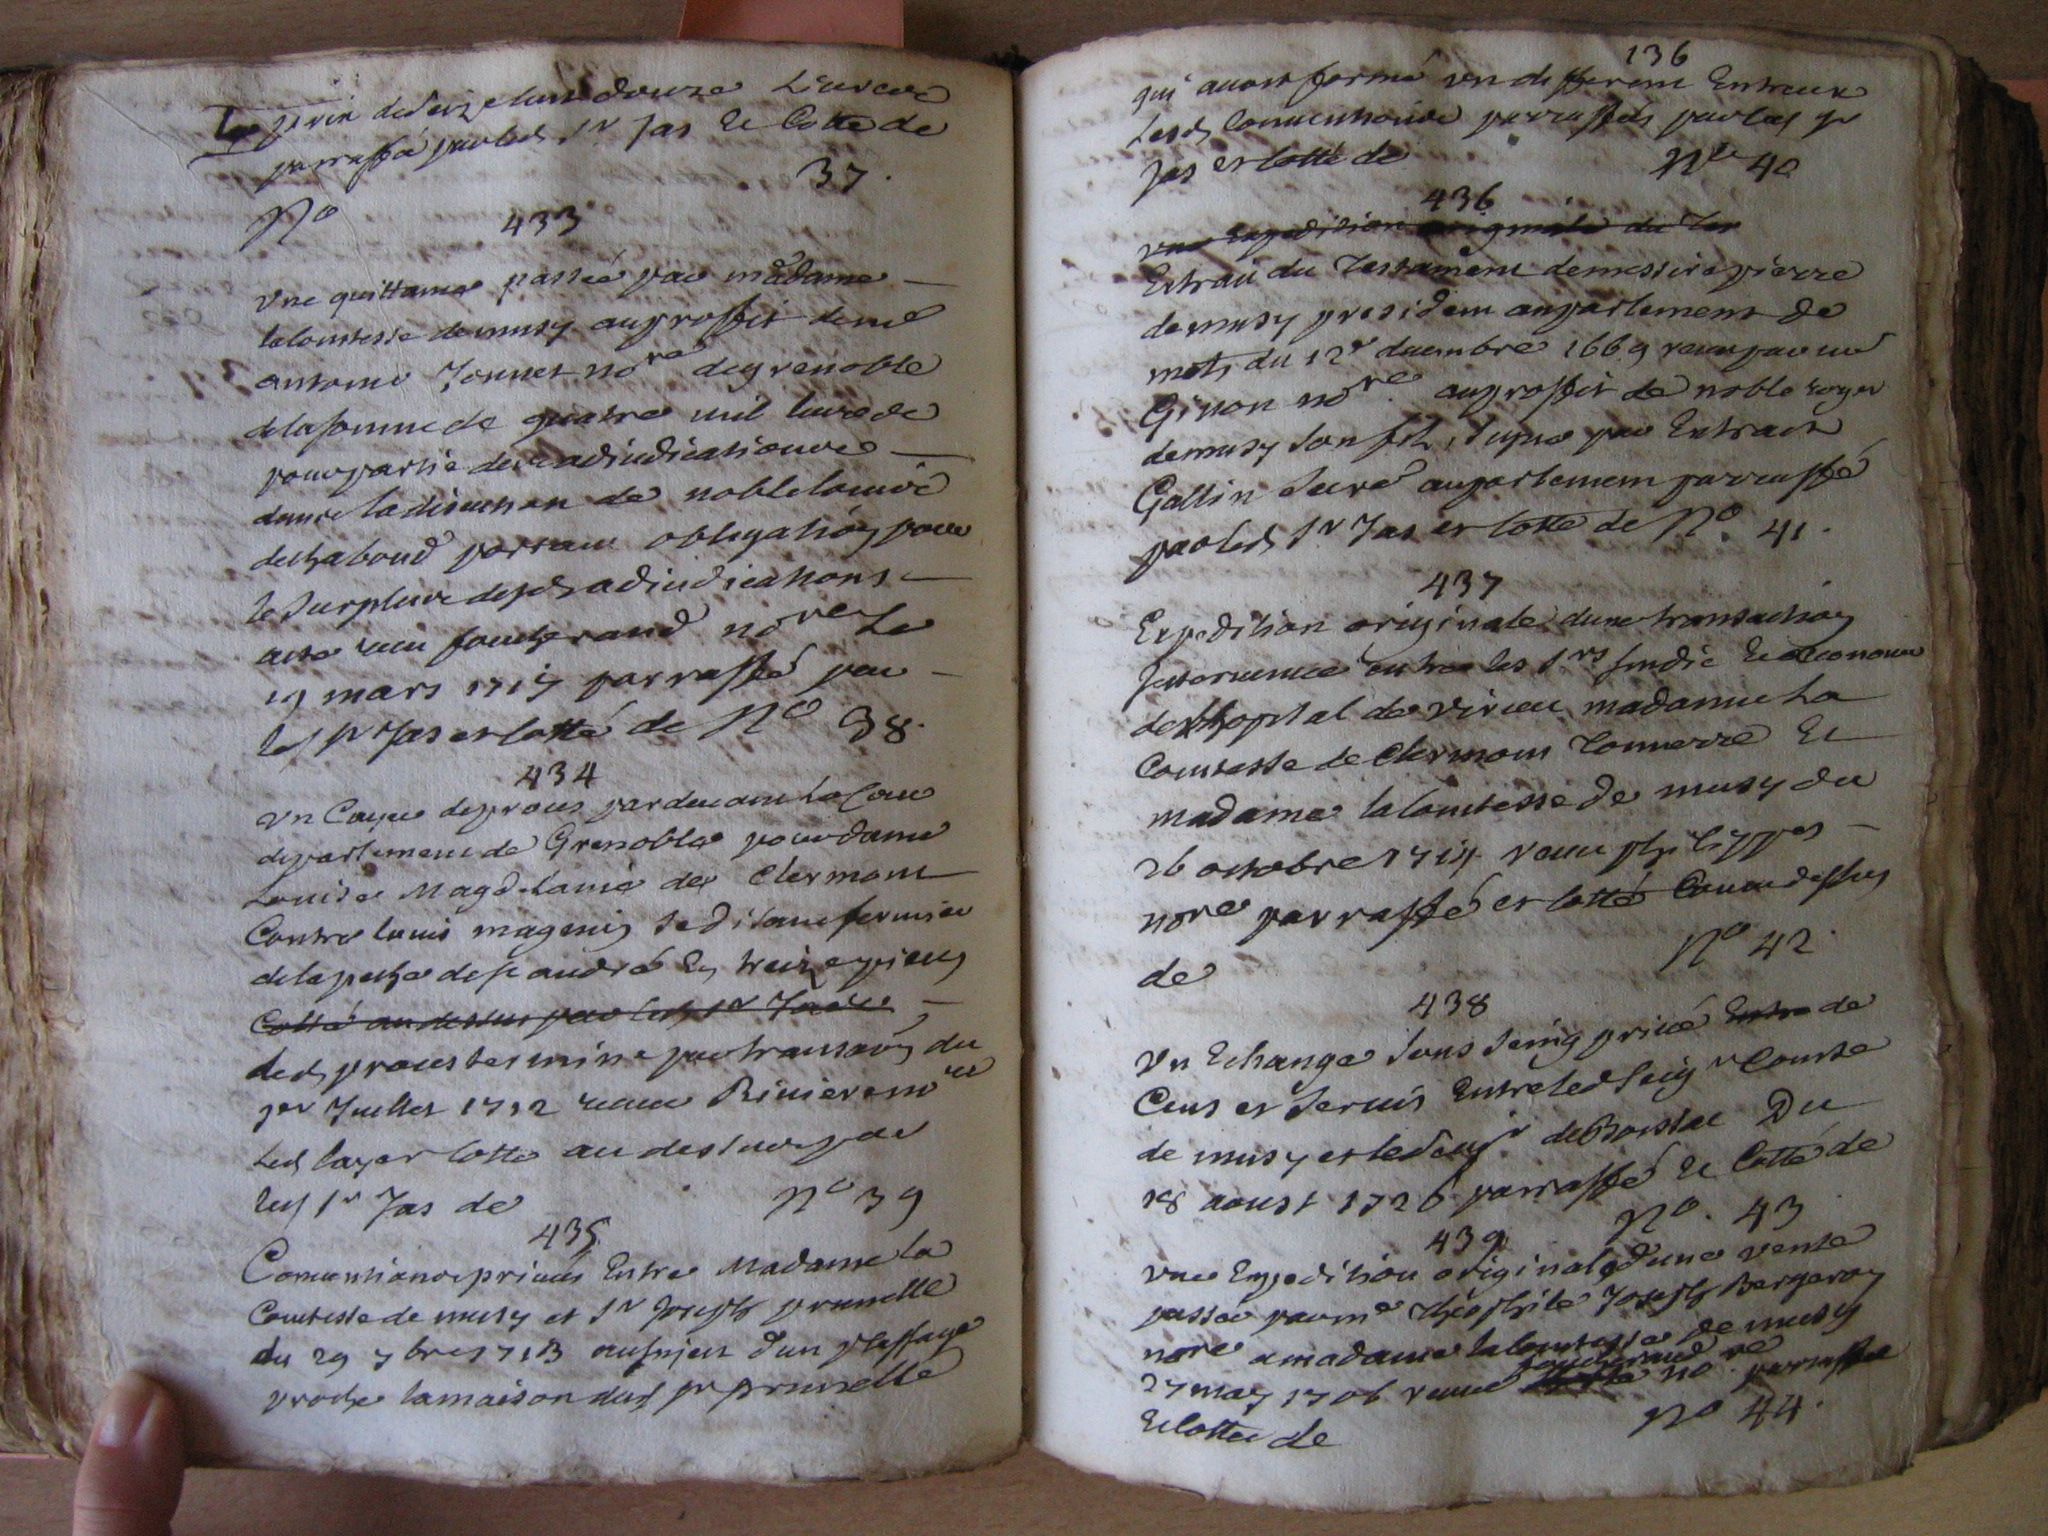 parraffé par led Sr Jas Et Cotté de
No 37.
433
Une quittance passée par madame
la Comtesse de musy au proffit de me
antoine Tonnet nore de grenoble
de la somme de quatre mil livre de
pour partie des adiudications
dans la discution de noble Louis
de Chaboud portant obligation pour
le Surplus desd adiudications
acte receu foucherand nore Le
19 mars 1717 parraffé par
led Sr Jas et cotté de No 38.
434
Un Cayer de proces pardevant La Cour
de parlement de Grenoble pour dame
Louise Magdelaine de Clermont
Contre louis magnin Se disant fermier
de la peche de st andré En treize pieces
Cotté au dessus par led Sr Jas de
led proces terminé par transaon du
1er Juillet 1712 receue Riviere nore
Led Cayer Cotté au dessus par
led Sr Jas de No 39
435
Conventions privées Entre Madame La
Comtesse de musy et Sr Joseph prunelle
du 29 7bre 1713 au sujet d'un passage
proche la maison dud Sr prunelle
136
qui avoit formé un different Entreux
Lesd Conventions parraffés par led Sr
Jas et cotté de No 40
436
une Expedition originale du Tes
Extrait du Testament de messire pierre
de musy president au parlement de
mets du 12e decembre 1669 receu par me
Ginon nore au proffit de noble roger
de musy Son fils, Signé par Extrait
Gallin Secre au parlement parraffé
par led Sr Jas et Cotté de No. 41.
437
Expedition originale dune transaction
Intervenue entre les Srs sindic Et Economes
de l'hopital de virieu madame La
Comtesse de Clermont Tonnerre Et
madame la Comtesse de musy du
26 octobre 1714 receu philippes
nore parraffé et cotté Comme dessus
de No 42.
438
Un Echange Sous Seing privé Entre de
Cens et Servis Entre led Seigr Comte
de musy et le Seigr de Boissac Du
18 aoust 1726 parraffé Et Cotté de
No. 43
439
une Expedition originale d'une vente
passée par me Théophile Joseph Bergeron
nore a madame la Comtesse de musy
foucherand
27 may 1706 receue nore parraffé
Et Cotté de No 44.